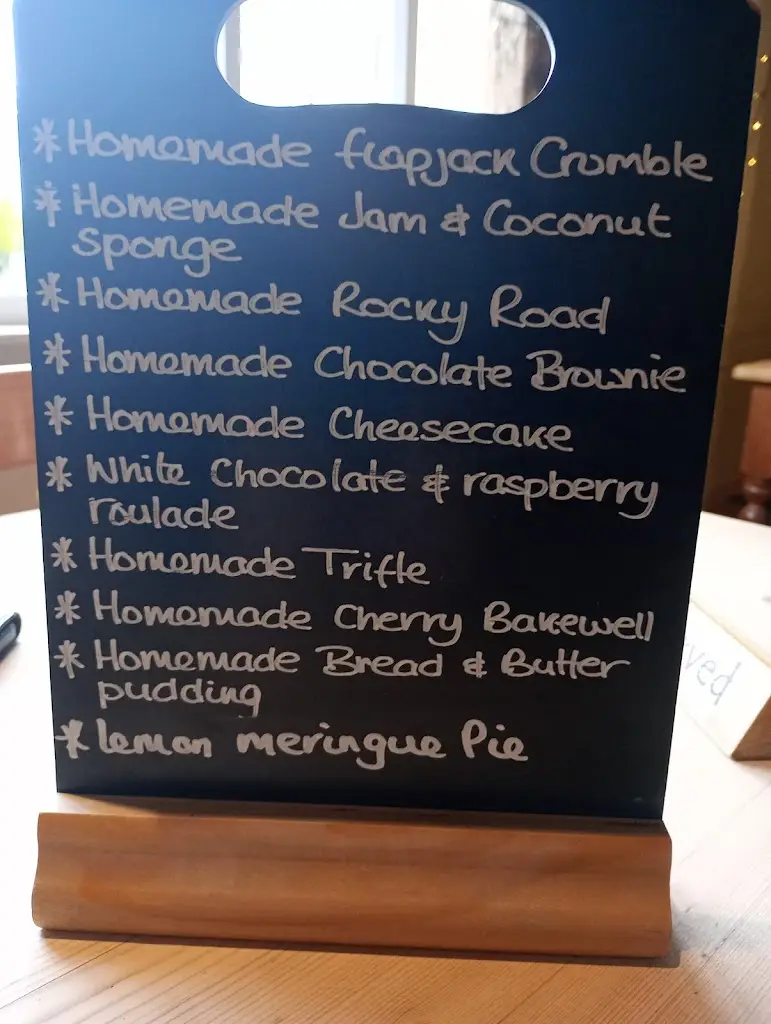 * Homemade flapjack Crumble
* Homemade Jam & Coconut
sponge
* Homemade Rocky Road
* Homemade Chocolate Brownie
* Homemade Cheesecake
* White Chocolate & raspberry
roulade
* Homemade Trifle
* Homemade Cherry Bakewell
* Homemade Bread & Butter
pudding
* lemon meringue Pie